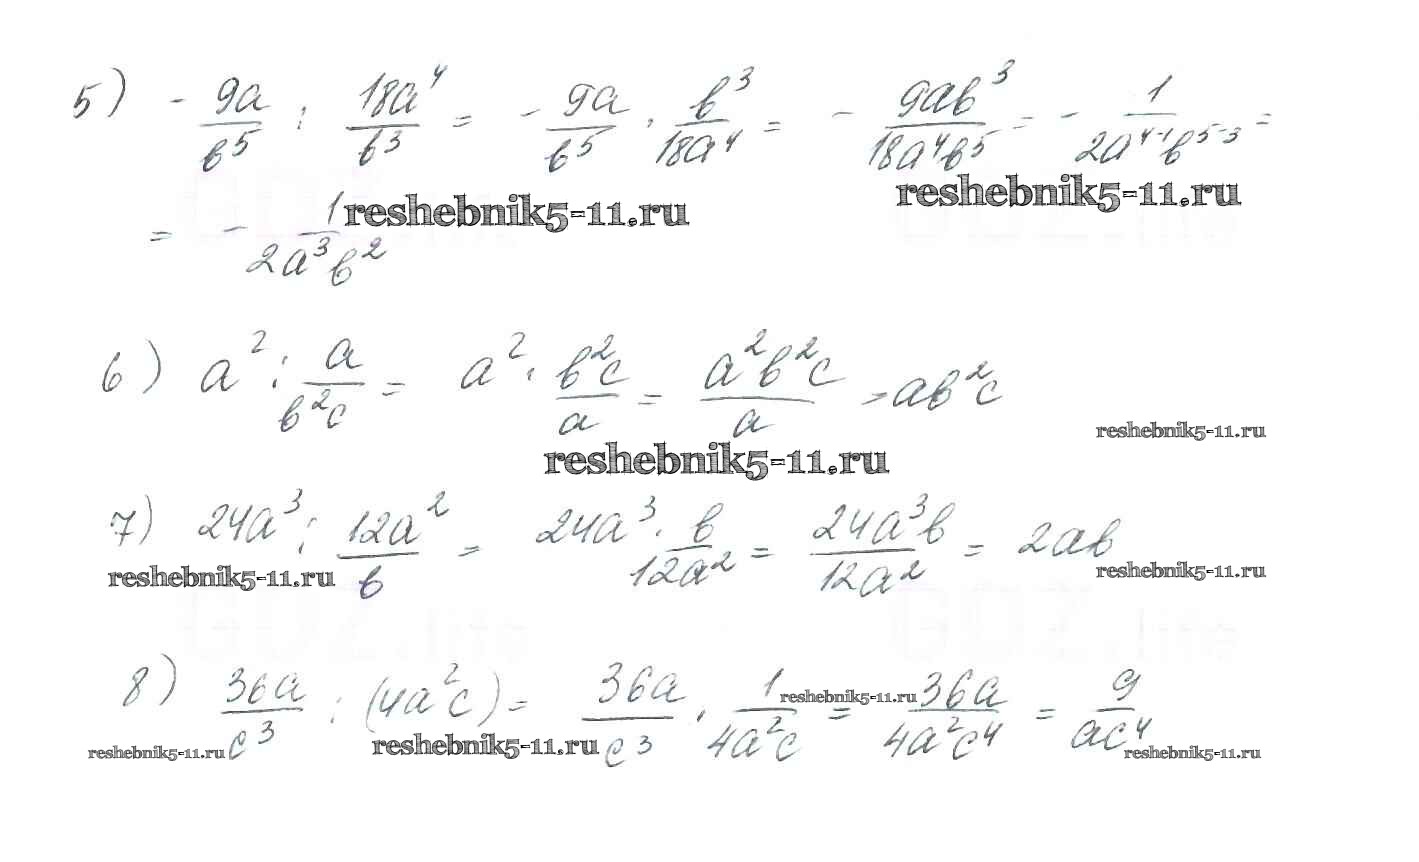 5) - 9a/b⁵ : 18a⁴/b³ = - 9a/b⁵ · b³/18a⁴ = - 9ab³/18a⁴b⁵ = - 1/2a⁴⁻¹b⁵⁻³ =
reshebnik5-11.ru
= - 1/2a³b² reshebnik5-11.ru
6) a² : a/b²c = a² · b²c/a = a²b²c/a = ab²c
reshebnik5-11.ru
reshebnik5-11.ru
7) 24a³ : 12a²/b = 24a³ · b/12a² = 24a³b/12a² = 2ab
reshebnik5-11.ru reshebnik5-11.ru
8) 36a/c³ : (4a²c) = 36a/c³ · 1/4a²c = 36a/4a²c⁴ = 9/ac⁴
reshebnik5-11.ru
reshebnik5-11.ru reshebnik5-11.ru reshebnik5-11.ru